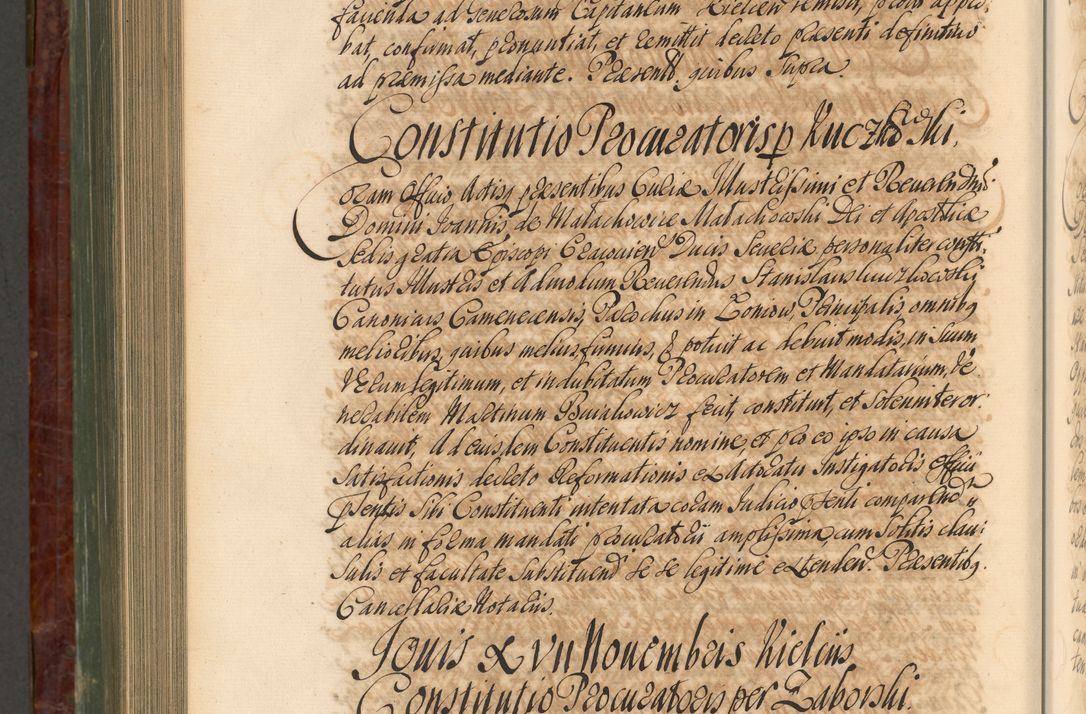 facienda ad Generosum Capitaneum Kielcen remisit, prout appro¬
bat, confirmat, pronuntiat, et remittit decreto præsenti definitivo
ad præmissa mediante. Præsentib, quibus supra.
Constitutio Procuratoris p Kuczkowski.
Coram Officio, Actisq præsentibus Curiæ Illustrissimi et Reverendmi
Domini Joannis de Małachowice Małachowski Dei et Apostlicæ
Sedis gratia Episcopi Cracovien Ducis Severiæ personaliter consti¬
tutus Illustris et Admodum Reverendus Stanislaus Kuczkowski
Canonicus Camenecensis, Parochus in Principalis, omnibq
melioribus, quibus melius, potuit ac debuit modis, in suum
verum legitimum, et indubitatum Procuratorem et Mandatarium, Ve¬
nerabilem Martinum fecit, constituit, et solemniter or¬
dinavit, Ad eiusdem Constituentis nomine, et pro eo ipso in causa
satisfactionis decreto Reformationis ex Advocatu Instigatoris Officii
pñtis sibi Constituenti intentata coram Judicio pñti comparend,
alias in forma mandati procuratorii amplissima, cum solitis clau:
sulis et facultate substituend se se legitime extenden. Præsentibq
Cancellariæ Notariis.
Jovis X VII Novembris Kielciis
Constitutio Procuratoris per Zaborski.